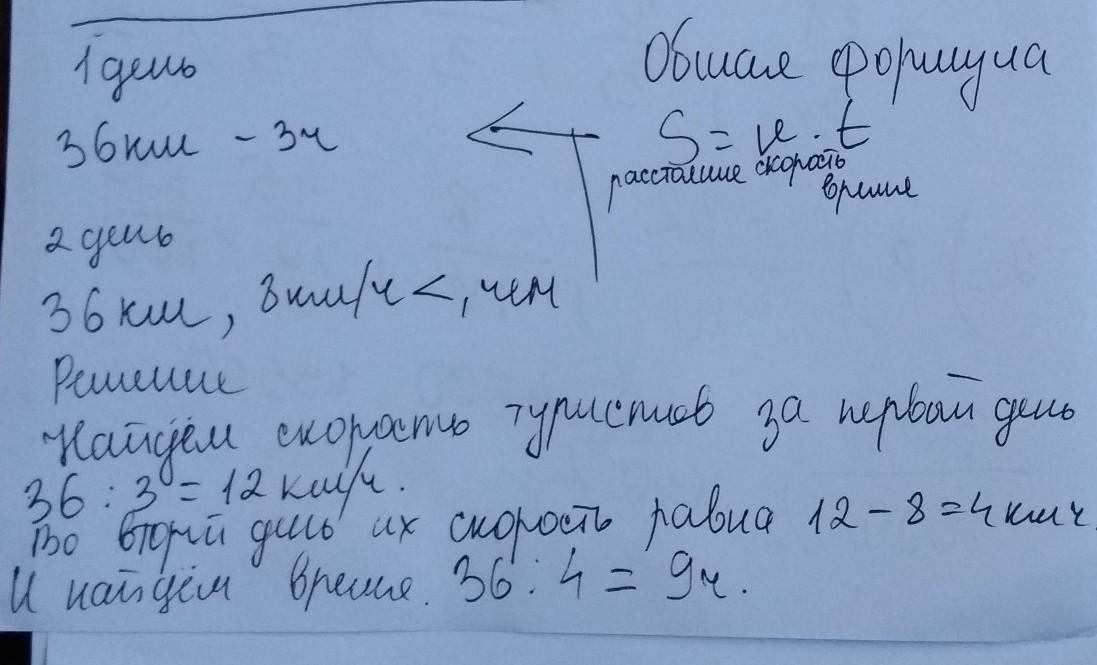 1 день
Общая формула
36 км - 3ч
S = v · t
расстояние скорость
время
2 день
36 км, 8 км/ч <, чем
Решение
Найдём скорость туристов за первый день
36 : 3 = 12 км/ч.
Во вторй день их скорость равна 12 - 8 = 4 км ч.
И найдём время. 36 : 4 = 9ч.